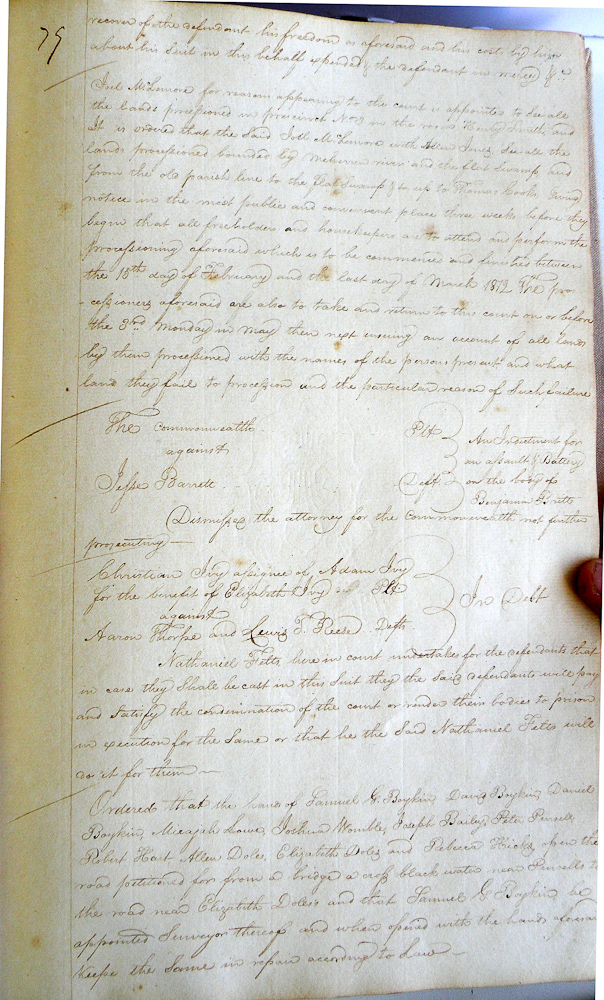 79
recover of the defendant his freedom as aforesaid and his costs by him
about his Suit in this behalf expended & the defendant in mercy &c
Joel McLemore for reasons appearing to the court is appointed to See all
the lands processioned in precinct No 9 in the room Henry Smith, and
It is ordered that the Said Joel McLemore with Allen Jones, See all the
lands processioned bounded by Meherrin river and the flat Swamp, and
from the old parish line to the flat Swamp & to up to Thomas Cooks Giving
notice in the most public and convenient place three weeks before they
begin that all freeholders and housekeepers are to attend and perform the
processioning aforesaid which is to be commenced and finished between
the 15th day of February and the last day of March 1812 The pro
-cessioners aforesaid are also to take and return to the court on or before
the 3rd Monday in May then next ensuing an account of all lands
by them processioned with the names of the persons present and what
land they fail to procession and the particular reason of Such failure
The Commonwealth Plt
against
Jesse Barrett Deft
An Indictment for
an assault & Battery
on the body of
Benjamin Britt
Dismissed the attorney for the commonwealth not further
prosecuting —
Christian Ivy assignee of Adam Ivy
for the benefit of Elizabeth Ivy Plt
against
Aaron Thorpe and Lewis T. Reese Defts
In Debt
Nathaniel Felts here in court undertakes for the defendants that
in case they Shall be cast in this Suit they the Said defendants will pay
and Satisfy the condemination of the court or render their bodies to prison
in execution for the Same or that he the Said Nathaniel Felts will
do it for them —
Ordered that the hands of Samuel G. Boykin, David Boykin, Daniel
Boykin, Micajah Lowe, Joshua Womble, Joseph Baily, Peter Pursell,
Robert Hart Allen Doles, Elizabeth Doles and Rebecca Hicks open the
road petitioned for from a bridge a cross black water near Pursells to
the road near Elizabeth Doles's and that Samuel G Boykin be
appointed Surveyor thereof and when opened with the hands aforesaid
Keepe the Same in repair according to Law —